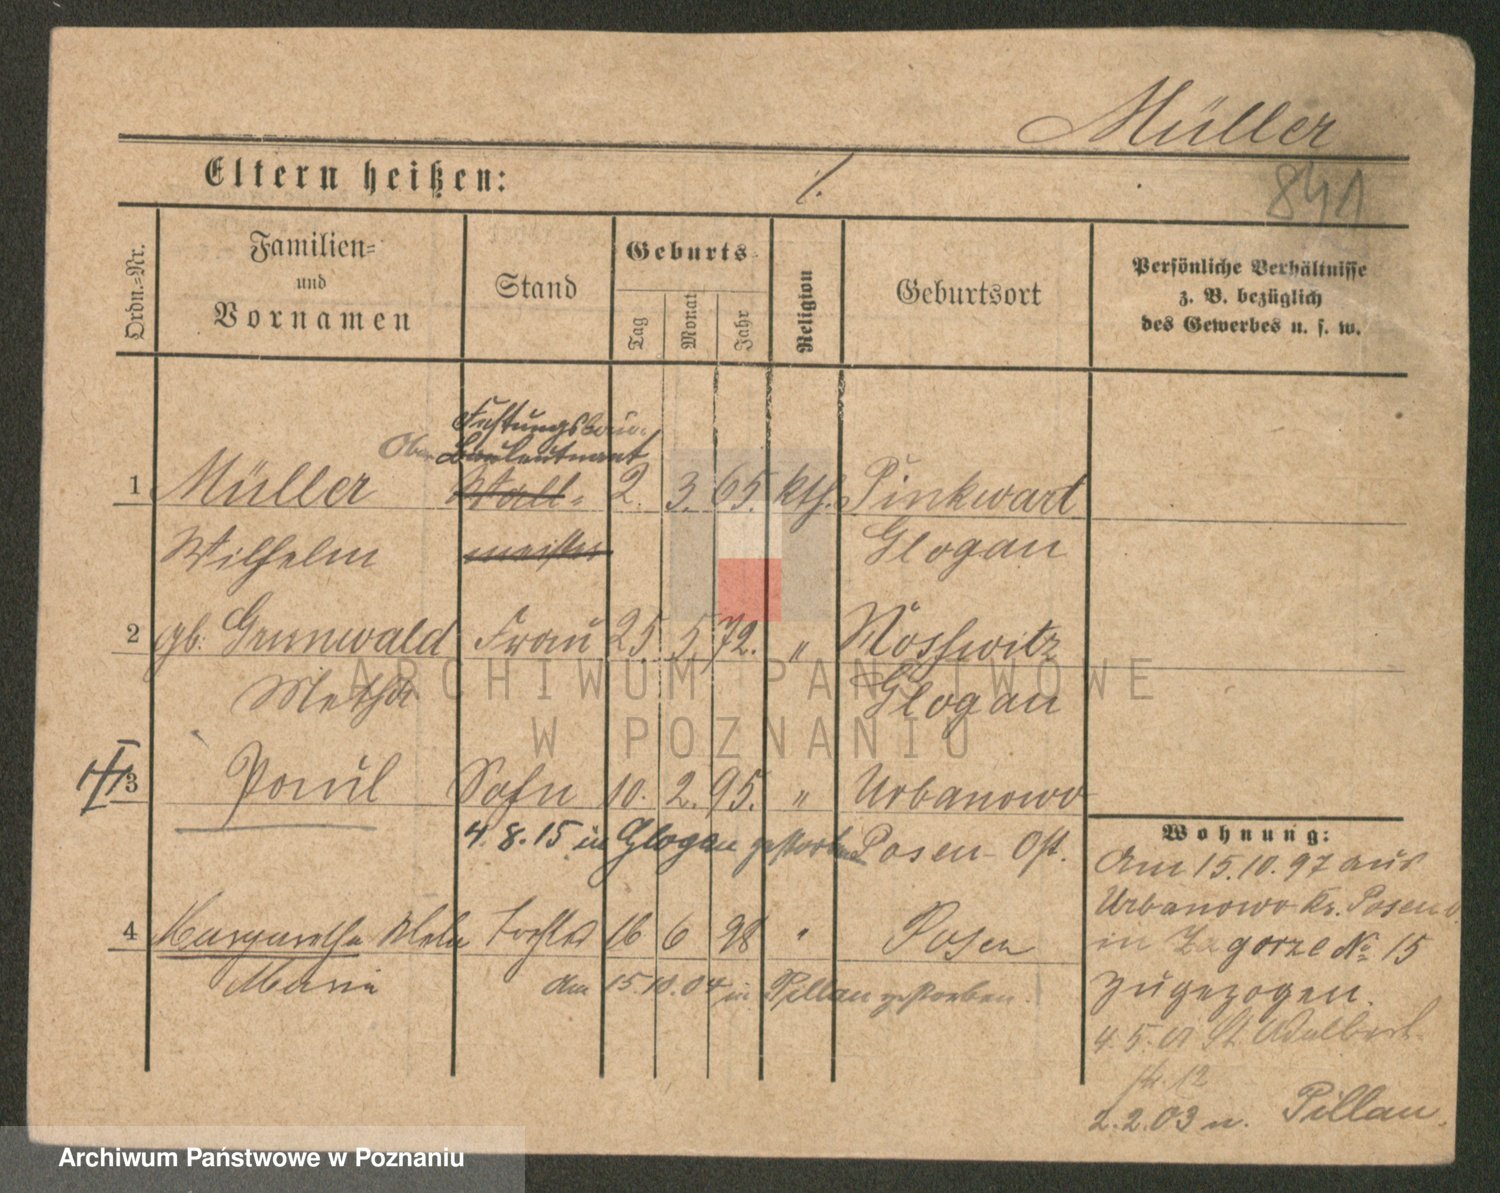 Müller
Eltern heißen: ./.
841
Ordn.-Nr.
Familien-
und
Vornamen
Stand
Geburts-
Tag
Monat
Jahr
Religion
Geburtsort
Persönliche Verhältnisse
z. B. bezüglich
des Gewerbes u. s. w.
Festungsbau-
Ober Bauleutnant
1 Müller Wall- 2. 3. 65. kth. Pinkwart
Wilhelm meister Glogau
2 gb. Grunwald Frau 25 5. 72. " Nosswitz
Metha Glogau
3 Paul Sohn 10. 2. 95. " Urbanowo
4.8.15 in Glogau gestorben Posen-Ost.
4 Margarethe Tochter 16 6 98 " Posen
Maria am 15.10.04 in Pillau gestorben.
Wohnung:
Am 15.10.97 aus
Urbanowo Kr. Posen O.
in Zagorze No 15
zugezogen.
4.5. 01 St Adalbert
str. 12
2.2.03 n. Pillau.
ARCHIWUM PAŃSTWOWE
W POZNANIU
Archiwum Państwowe w Poznaniu